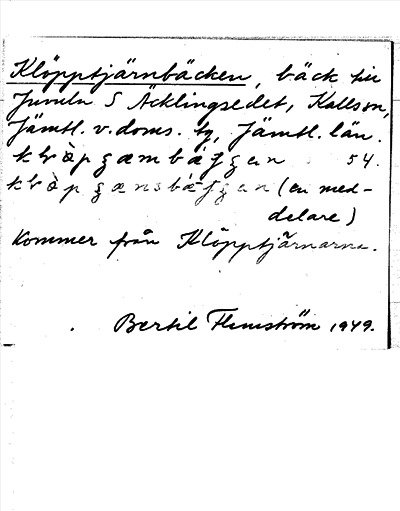 Klöpptjärnbäcken, bäck till
Juveln S Äcklingsedet, Kallsson,
Jämtl. v. doms. tg, Jämtl. län.
54.
(en med-
delare)
Kommer från Klöpptjärnarna.
Bertil Flemström 1949.